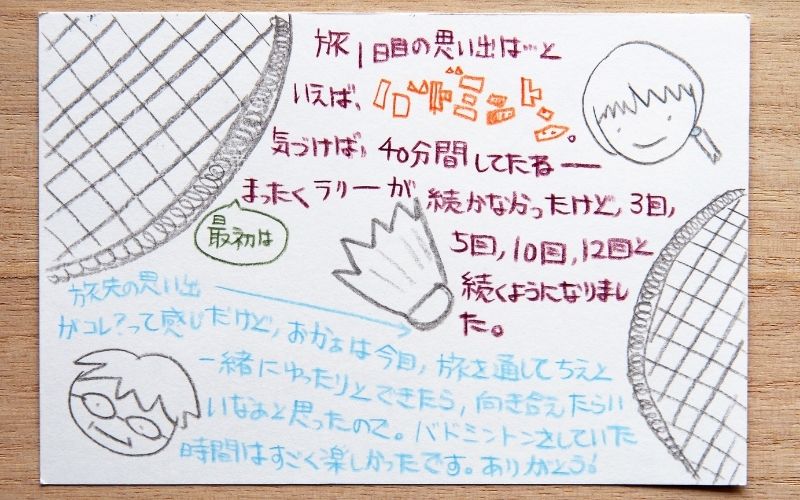 旅1日目の思い出は…と
いえば、バドミントン。
気づけば、40分間してたねー
まったくラリーが続かなかったけど、3回,
最初は
5回,10回,12回と
続くようになりまし
た。
旅先の思い出
がコレ?って感じだけど,おかぁは今回,旅を通してちえと
一緒にゆったりとできたら,向き合えたらい
いなぁと思ったので。バドミントンをしていた
時間はすごく楽しかったです。ありがとう!